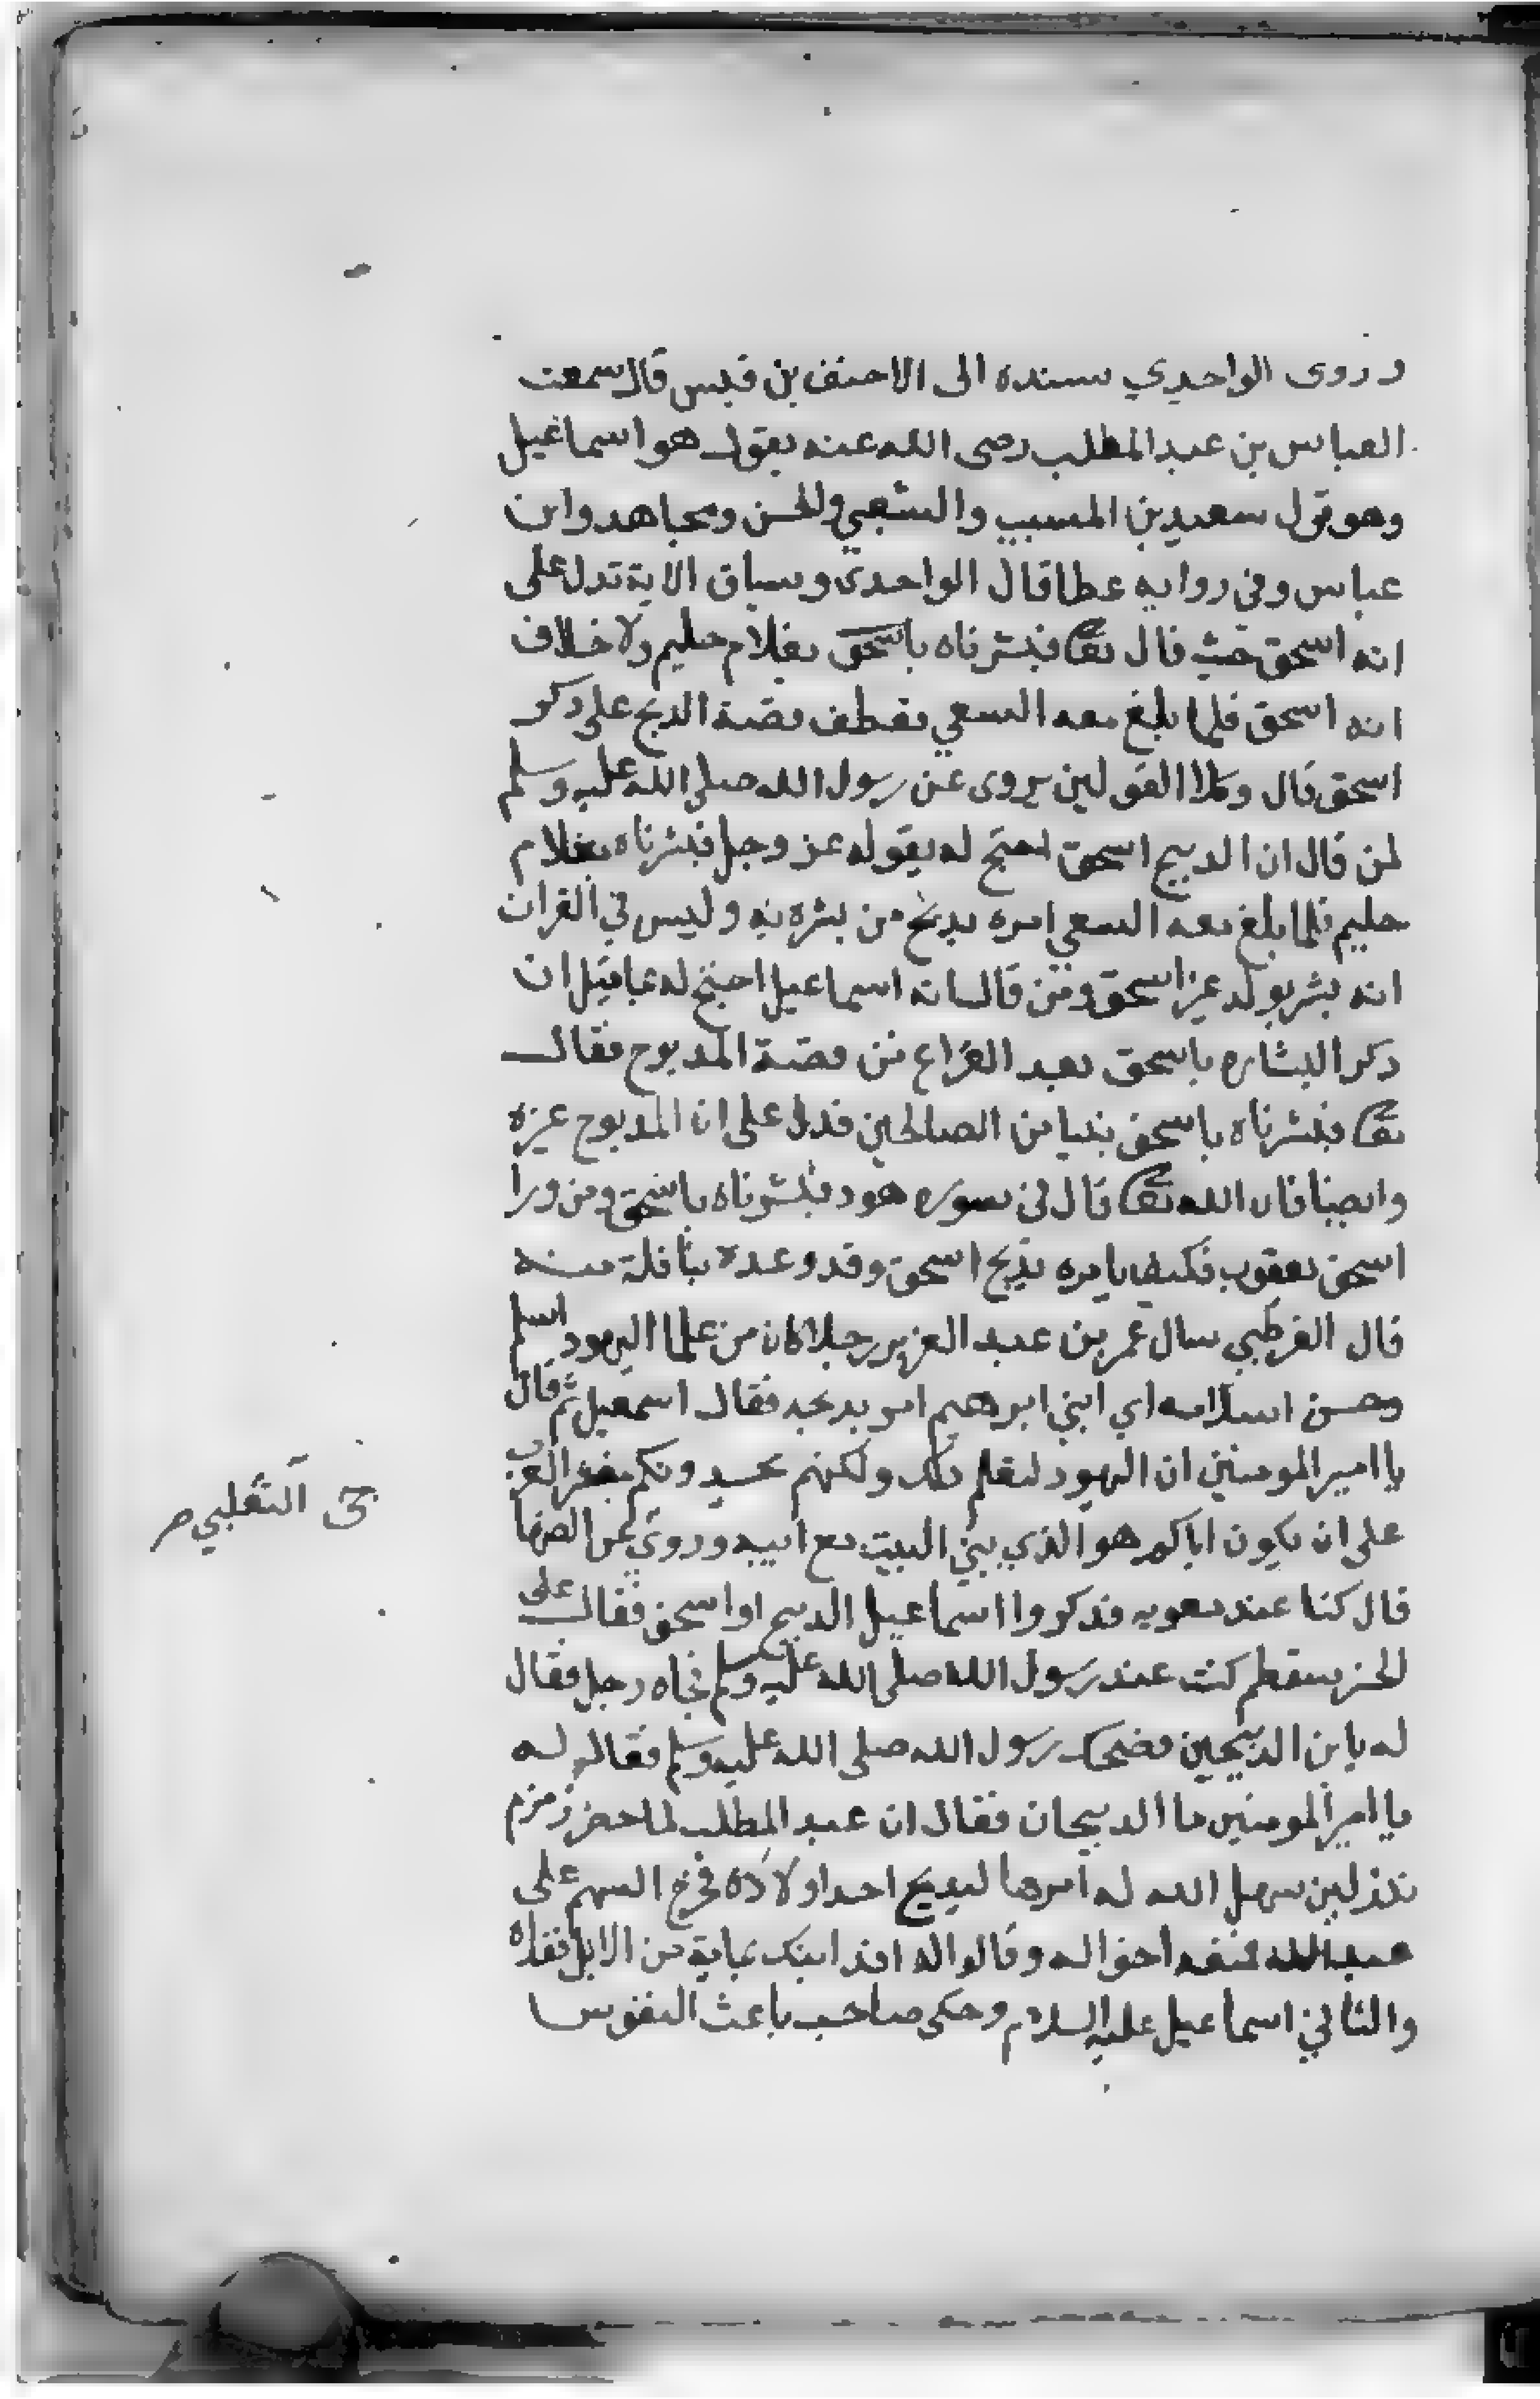 وروى الواحدي بسنده الى الاحنف بن قيس قال سمعت
العباس بن عبد المطلب رضى الله عنه يقول هو اسماعيل
وهو قول سعيد بن المسيب والشعبي والحسن ومجاهد وابن
عباس وفي رواية عطا قال الواحدى وسياق الاية تدل على
انه اسحق حيث قال تعا فبشرناه باسحق بغلام حليم ولا خلاف
انه اسحق فلما بلغ معه السعي فعطف قصة الذبح على ذكر
اسحق قال وكلا القولين يروى عن رسول الله صلى الله عليه وسلم
لمن قال ان الذبيح اسحق احتج له بقوله عز وجل فبشرناه بغلام
حليم فلما بلغ معه السعي امره بذبح من بشره به وليس في القران
انه بشر بولد غير اسحق ومن قال انه اسماعيل احتج له بما قيل ان
ذكر البشاره باسحق بعد الفراغ من قصة المذبوح فقال
تعا فبشرناه باسحق نبيا من الصالحين فدل على ان المذبوح غيره
وايضا فان الله تعا قال في سوره هود فبشرناه باسحق ومن ورا
اسحق يعقوب فكيف يامره بذبح اسحق وقد وعده بنافلة منه
قال القرطبي سال عمر بن عبد العزيز رجلا كان من علما اليهود اسلم
وحسن اسلامه اي ابني ابرهيم امر بذبحه فقال اسمعيل ثم قال
يا امير المومنين ان اليهود لتعلم ذلك ولكنهم يحسدونكم معشر العرب
على ان يكون اباكم هو الذي بنى البيت مع ابيه وروي عن الصنابحى
قال كنا عند معويه فذكروا اسماعيل الذبيح او اسحق فقال على
الخبير سقطتم كنت عند رسول الله صلى الله عليه وسلم فجاه رجل فقال
له يا بن الذبيحين فضحك رسول الله صلى الله عليه وسلم فقالوا له
يا امير المومنين ما الذبيحان فقال ان عبد المطلب لما حفر زمزم
نذر لين سهل الله له امرها ليذبح احد اولاده فخرج السهم على
عبد الله فمنعه اخواله وقالوا له افد ابنك بماية من الابل ففداه
والثاني اسماعيل عليه السلام وحكى صاحب باعث النفوس
الثعلبي